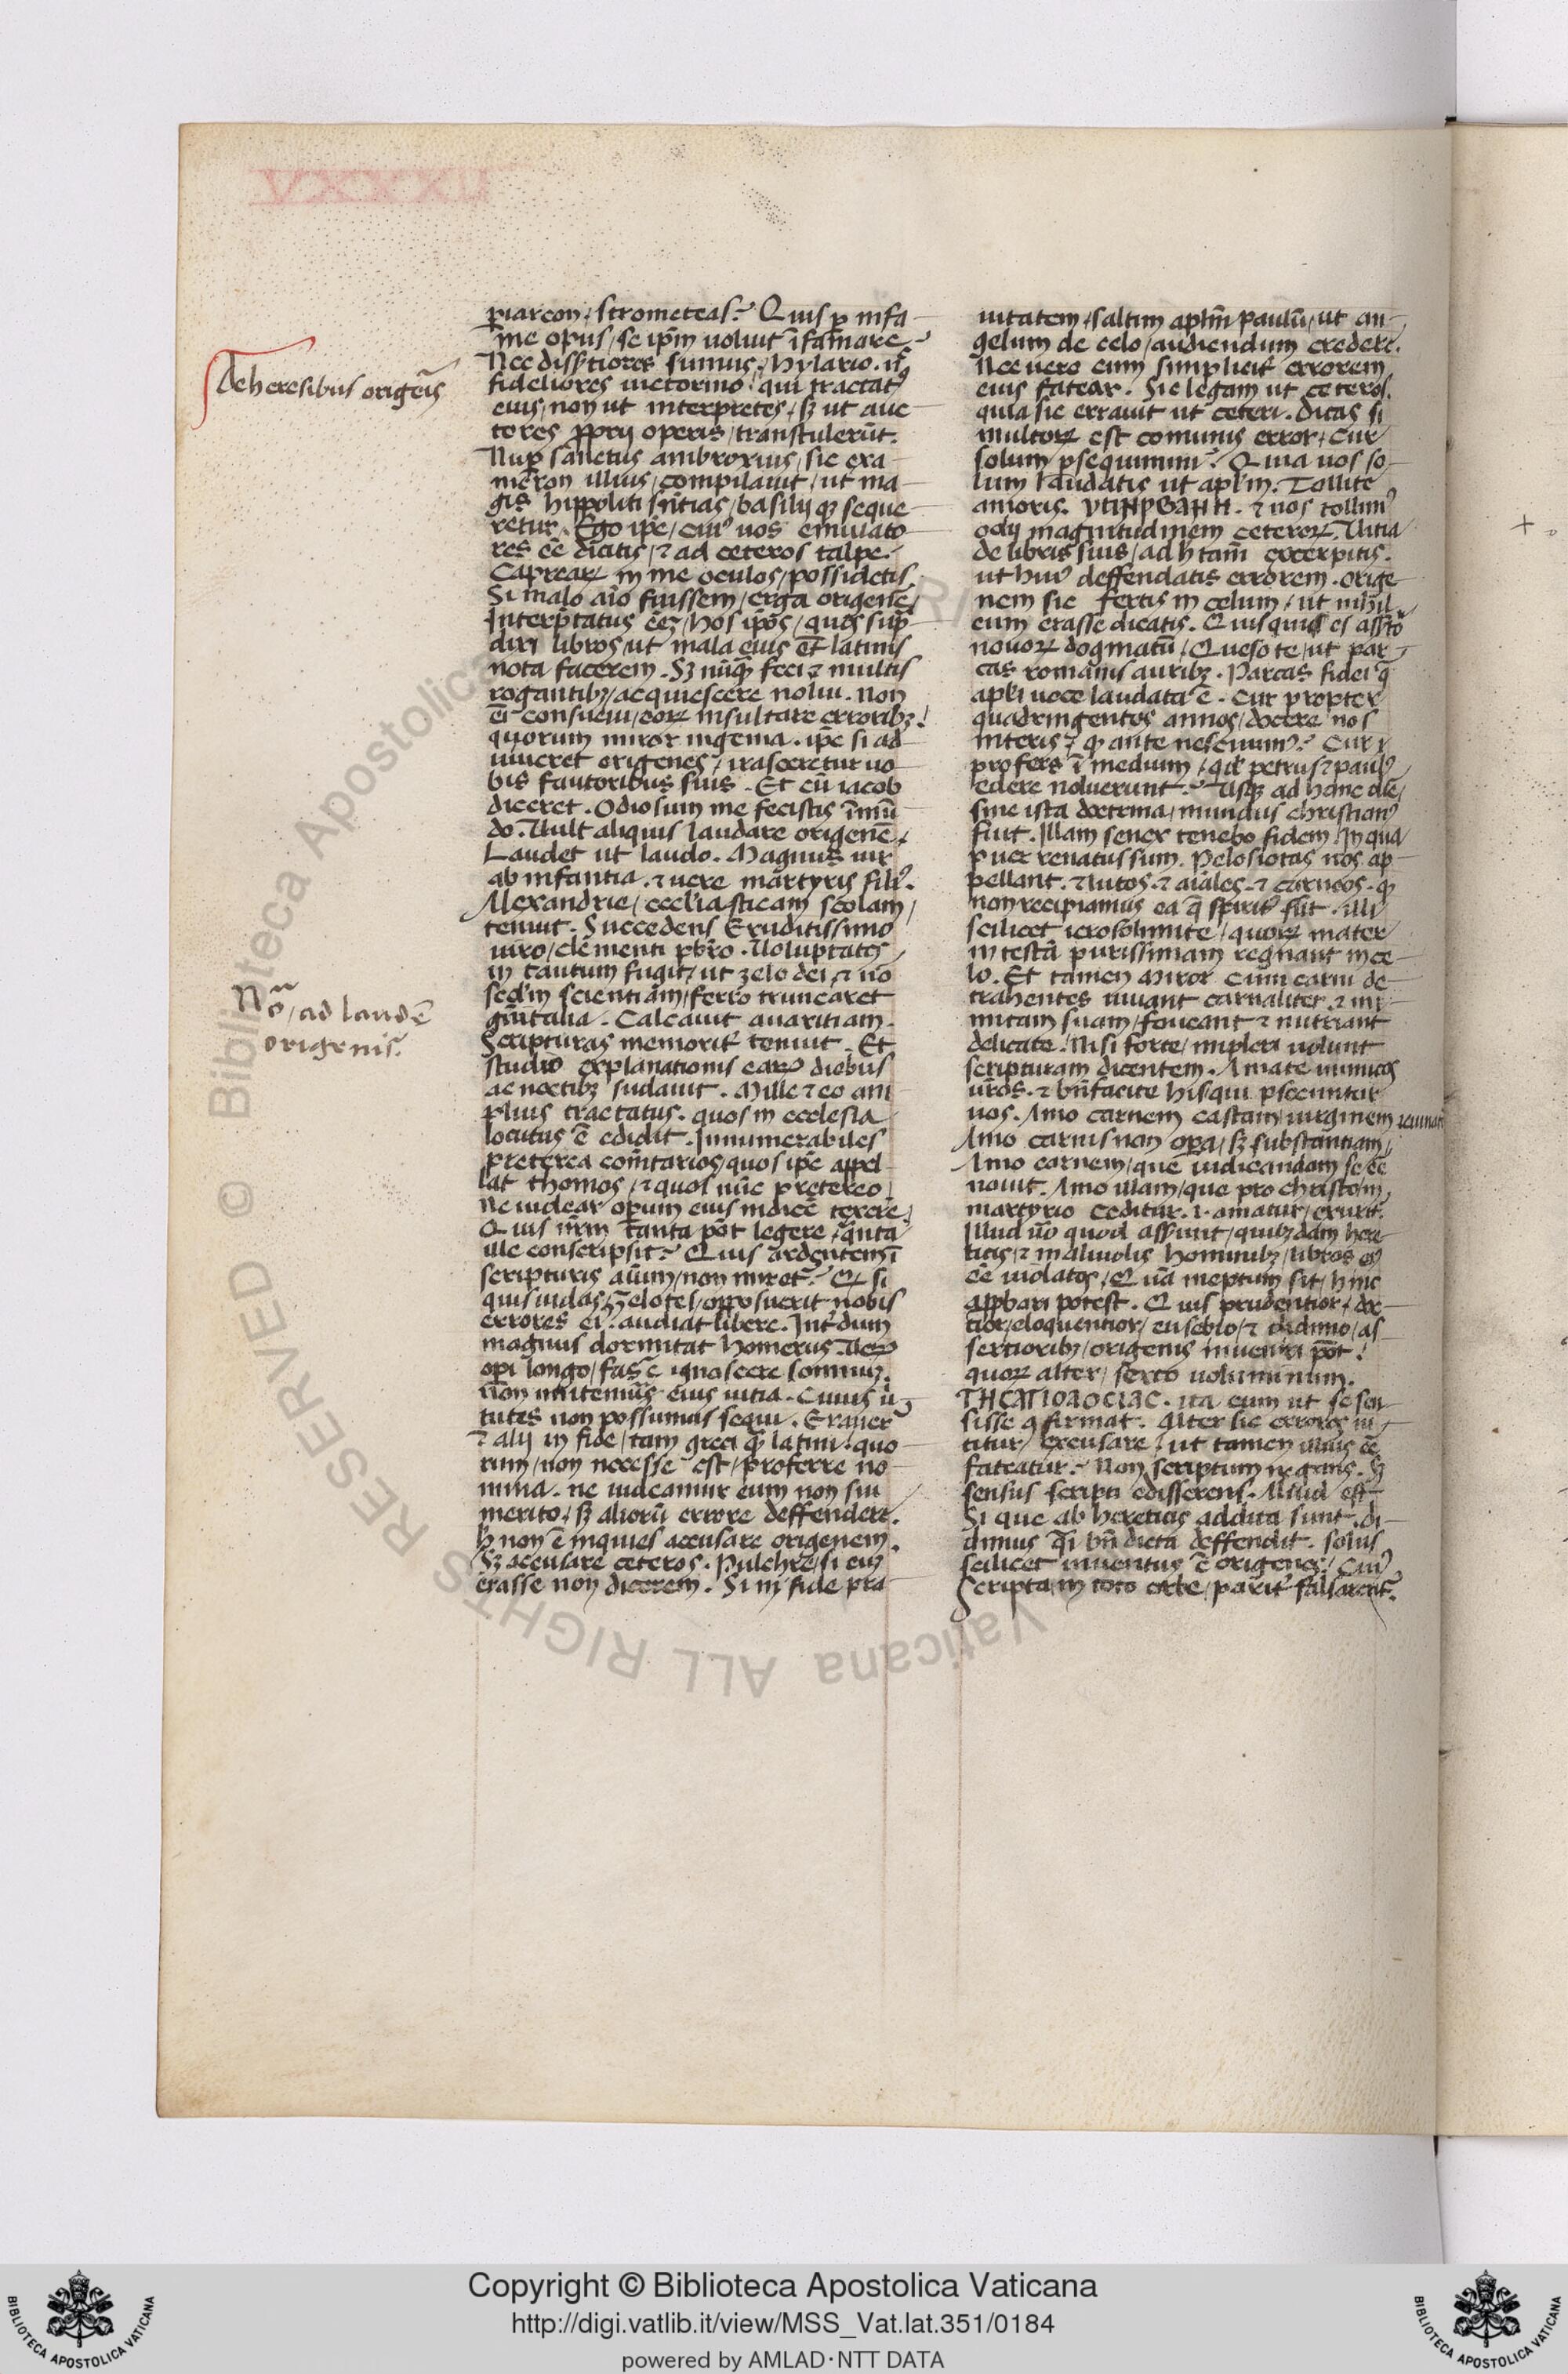 De heresibus origeīs
Nō, ad laudē
origenis.
piarcon, stromateas? Quis p infa
me opus, se ipm uoluit ifamare?
Nec disstiores sumus hylario. n̄
fideliores uictorino qui tractatꝰ
eius, non ut interpretes, sꝫ ut auc
tores pprij operis, transtulerūt.
Nup sanctus ambroxius, sic exa
meron illius, compilauit, ut ma
gis hippoliti sn̄tias, basilij qꝫ seque
retur. Ego ipe, cuiꝰ uos emulato
res eē dicitis, ⁊ ad ceteros talpe
Caprearꝝ in me oculos, possidetis.
Si malo aīo fuissem, erga origenē,
Interptatus eēꝫ, hos ipos, quos sup
dixi libros, ut mala eius et latinis
nota facerem. Sꝫ nūqꝫ feci ⁊ multis
rogantibꝫ, acquiescere nolui. Non
ei consueui, eorꝝ insultare erroribꝫ.
quorum miror ingenia. ipe si ad
uiueret origenes, irasceretur uo
bis fautoribus suis. Et cū iacob
diceret. Odiosum me fecistis īmū
do. Uult aliquis laudare origenē.
Laudet ut laudo. Magnus uir
ab infantia. ⁊ uere martyris filiꝰ.
Alexandrie, ecclīasticam scolam,
tenuit. Succedens Eruditissimo
uiro, clementi pbrō. Uoluptates
in tantum fugit, ut zelo dei, ⁊ nō
scdm scientiam, ferro truncaret
gnitalia. Calcauit auaritiam.
Scripturas memorit tenuit. Et
studio explanationis earꝝ diebus
ac noctibꝫ sudauit. Mille ⁊ eo am
plius tractatus. quos in ecclesia
locutus ē edidit. Innumerabiles
preterea comtarios, quos ipe appel
lat thomos, ⁊ quos nūc pretereo,
ne uidear opum eius indicē texere.
Quis nrm tanta pōt legere, qnta
ille conscripsit? Quis ardentem ī
scripturis aium, non miret? Qꝫ si
quis iudas, zelotes, opposuerit nobis
errores ei. audiat libere. Intdum
magnus dormitat homerus. Uerꝝ
opi longo, fas ē ignoscere somnuꝫ.
Non imitemur eius uitia. Cuius ū
tutes non possumus sequi. Erauer
⁊ alij in fide, tam greci qꝫ latini. quo
rum, non necesse est, proferre no
mina. ne uideamur eum non sui
merito, sꝫ aliorū errore deffendere.
h non ē inquies accusare origenem.
Sꝫ accusare ceteros. Pulchre, si euꝫ
erasse non dicerem. Si in fide pra
uitatem, saltim aplm paulū, ut an
gelum de celo, audiendum credere.
Nec uero cum simplicit errorem
eius fatear. Sic legam ut ceteros.
quia sic errauit ut ceteri. Dicas si
multorꝝ est comunis error, cur
solum psequimini? Quia uos so
lum laudatis ut aplm. Tollite
amoris. ⁊ nos tollimꝰ
odij magnitudinem ceterorꝝ. Uitia
de libris suis, ad h tam excerpitis.
ut huiꝰ deffendatis errorem. orige
nem sic fertis in celum, ut nihil
eum erasse dicatis. Quisquis es
nouorꝝ dogmatū, Queso te, ut par
cas romanis auribꝫ. Parcas fidei q
apli uoce laudata ē. Cur propter
quadringentos annos, docere nos
niteris, qꝫ ante nesciuimꝰ? Cur
profers ī medium, qd petrus ⁊ paulꝰ
edere noluerunt? Usqꝫ ad hanc diē,
sine ista doctrina, mundus christianꝰ
fuit. Illam senex tenebo fidem, in qua
puer renatus sum. Pelosiotas nos ap
pellant. ⁊ lutos. ⁊ aiales. ⁊ carneos. qꝫ
non recipiamus ea q spirit sūt. illi
scilicet ierosolimite, quorꝝ mater
in testa purissimam regnant in ce
lo. Et tamen miror cum carni de
trahentes uiuant carnaliter. ⁊ ini
micam suam, foueant ⁊ nutriant
delicate. Nisi forte, impleri uolunt
scripturam dicentem. Amate inimicos
uros. ⁊ bnfacite his qui psecuntur
uos. Amo carnem castam, uirginem, ieiunam
Amo carnis non opa, sꝫ substantiam,
Amo carnem, que iudicandam se eē
nouit. Amo illam, que pro christo in
martyrio ceditur. amatur, exurit.
Illud uō quod assunt, quibꝫdam here
ticis, ⁊ maliuolis hominibꝫ, libros eiꝰ
eē uiolatos, Qua ineptum sit, hinc
appbari potest. Quis prudentior, doc
tior, eloquentior, eusebio, ⁊ didimo, as
sertioribꝫ, origenis inueniri pōt!
quorꝝ alter, sexto uoluminum.
ΤΗCΑΠΟΛΟCΙΑC. ita eum ut se sen
sisse ꝯfirmat. Alter sic errores ni
titur, excusare, ut tamen illius eē
fateatur. Non scriptum negans. sꝫ
sensus scripti edisserens. Aliud est
Si que ab hereticis addita sunt. di
dimus qi bn dicta deffendit. solus
scilicet inuentus ē origenes, cuiꝰ
scripta, in toto orbe, parit falsarent.
Copyright © Biblioteca Apostolica Vaticana
http://digi.vatlib.it/view/MSS_Vat.lat.351/0184
powered by AMLAD·NTT DATA
BIBLIOTECA APOSTOLICA VATICANA
BIBLIOTECA APOSTOLICA VATICANA
© Biblioteca Apostolica Vaticana ALL RIGHTS RESERVED